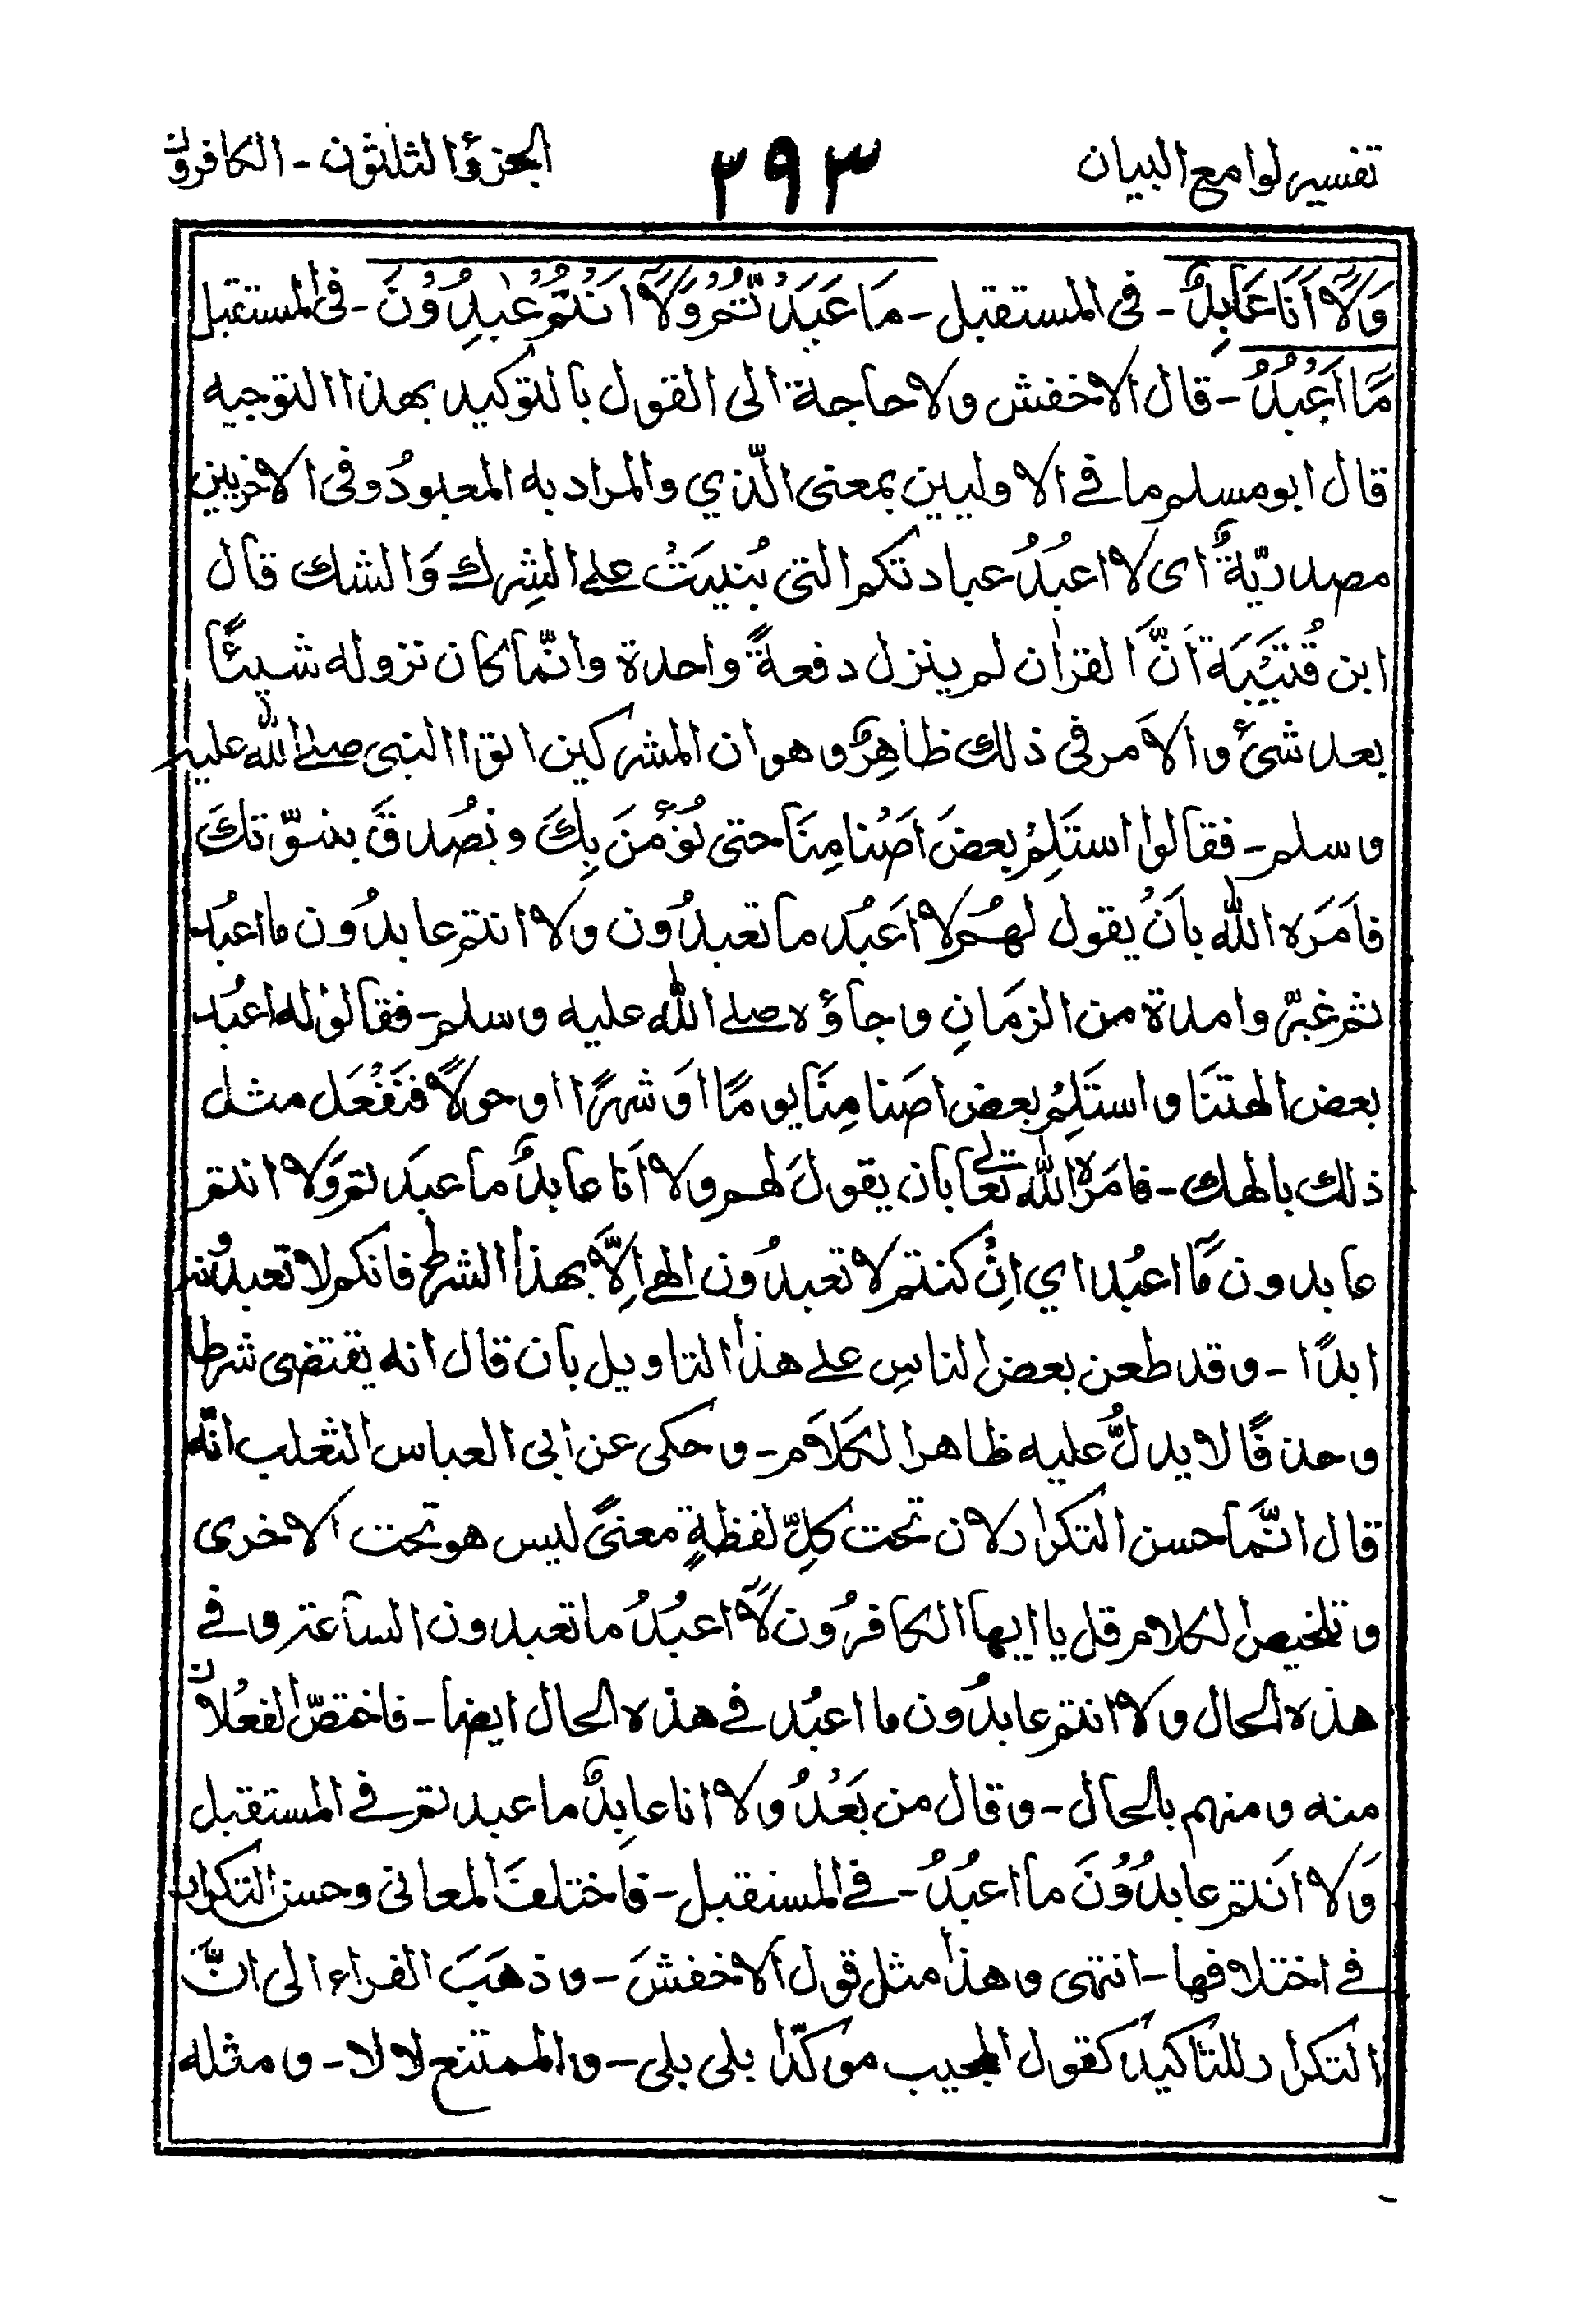 تفسير لوامع البيان ٣٩٣ الجزء الثلثون - الكافرون
وَلَآ اَنَا عَابِدٌ - فى المستقبل - مَا عَبَدْتُّمْ وَلَآ اَنْتُمْ عٰبِدُوْنَ - فى المستقبل
مَآ اَعْبُدُ - قال الاخفش ولا حاجة الى القول بالتوكيد بهذا التوجيه
قال ابو مسلم ما في الاوليين بمعنى الّذي والمراد به المعبودُ وفى الاخريين
مصدريّةٌ اى لا اعبُدُ عبادتكم التى بُنيَتْ على الشِرك وَالشك قال
ابن قُتَيْبَة اَنَّ القرٰان لم ينزل دفعةً واحدة وانّما كان نزوله شيئًا
بعد شىءٍ والاَمر فى ذلك ظاهِرٌ وهو ان المشركين اتوا النبى صلى الله عليه
وسلم - فقالوا استَلِمْ بعضَ اَصْنامِنَا حتى نُؤْمنَ بِكَ ونصُدقَ بنبوّتكَ
فاَمَره الله بِاَنْ يقول لهُم لا اَعبُد ما تعبدُون ولا انتم عابدُون ما اعبُد
ثم غبرّوا مدة من الزمَانِ وجاؤه صلى الله عليه وسلم - فقالوا له اعبُد
بعض الهتنَا واستَلِمْ بعض اصَنامِنَا يومًا اوَ شهرًا او حولًا فنَفْعَل مثل
ذلك بالهك - فامَرَه الله تعالى بان يقولَ لهم ولا اَنا عابدٌ ما عبَدتم وَلا انتم
عابدون مَا اعبُد اي اِنْ كنتم لا تعبدُون الهي اِلّا بهذا الشرط فانكم لا تعبدُونه
ابدًا - وقد طعن بعض الناسِ على هذا التاويل بان قال انه يقتضى شرطا
وحذفًا لا يدلُّ عليه ظاهر الكلَام - وحكى عن ابى العباس الثعلب انّه
قال انّما حسن التكرار لان تحت كلِّ لفظةٍ معنىً ليس هو تحت الاخرى
وتلخيص الكلام قل يا ايها الكافرُون لَآ اعبُدُ ما تعبدون الساعة وفي
هذه الحال ولا انتم عابدُون ما اعبُد في هذه الحال ايضا - فاختصّ الفعلان
منه ومنهم بالحال - وقال من بَعْدُ ولا انا عابِدٌ ما عبدتم في المستقبل
وَلا انَتم عابدُوْنَ ما اعبُدُ - في المستقبل - فاختلفَ المعانى وحسن التكرار
في اختلافها - انتهى وهذا مثل قول الاخفشَ - وذهَبَ الفراء الى انَّ
التكرار للتاكيد كقول المجيب موكدًّا بلى بلى - والممتنع لا لا - ومثله